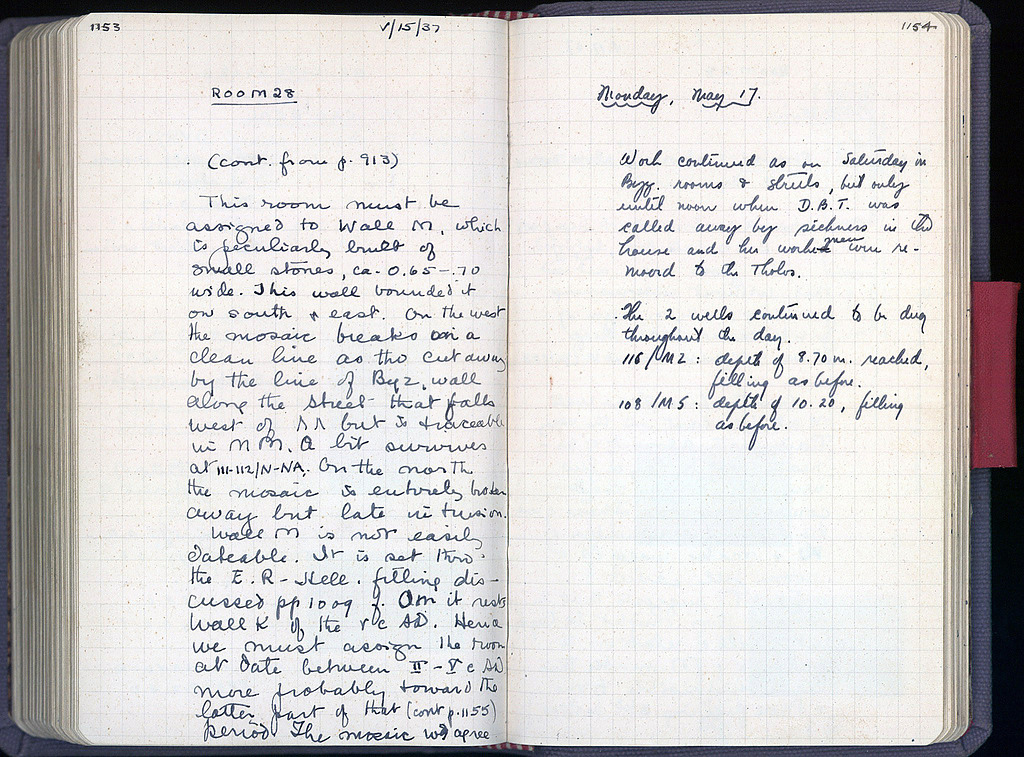 1153
V/15/37
ROOM 28
(cont. from p. 913)
This room must be
assigned to Wall M, which
is peculiarly built of
small stones, ca. 0.65-.70
wide. This wall bounded it
on south & east. On the west
the mosaic breaks on a
clean line as tho cut away
by the line of Byz. wall
along the street that falls
west of but is traceable
in A bit survives
at 111-112/N-NA. On the north
the mosaic is entirely broken
away but late intrusion.
Wall M is not easily
dateable. It is set thro
the E. R-Hell. filling dis-
cussed pp 1009 f. On it rests
Wall K of the V c AD. Hence
we must assign the room
at date between II - V c AD
more probably toward the
latter part of that (cont p. 1155)
period. The mosaic wd agree
1154
Monday, May 17.
Work continued as on Saturday in
Byz. rooms & streets, but only
until noon when D.B.T. was
called away by sickness in the
house and her workmen were re-
moved to the Tholos.
The 2 wells continued to be dug
throughout the day.
116/MZ: depth of 8.70 m. reached,
filling as before.
108/MS: depth of 10.20, filling
as before.